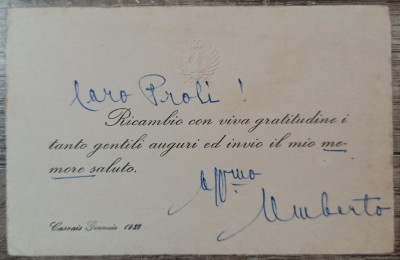 Caro Proli!
Ricambio con viva gratitudine i
tanto gentili auguri ed invio il mio me-
more saluto.
aff.mo
Umberto
Cascais Gennaio